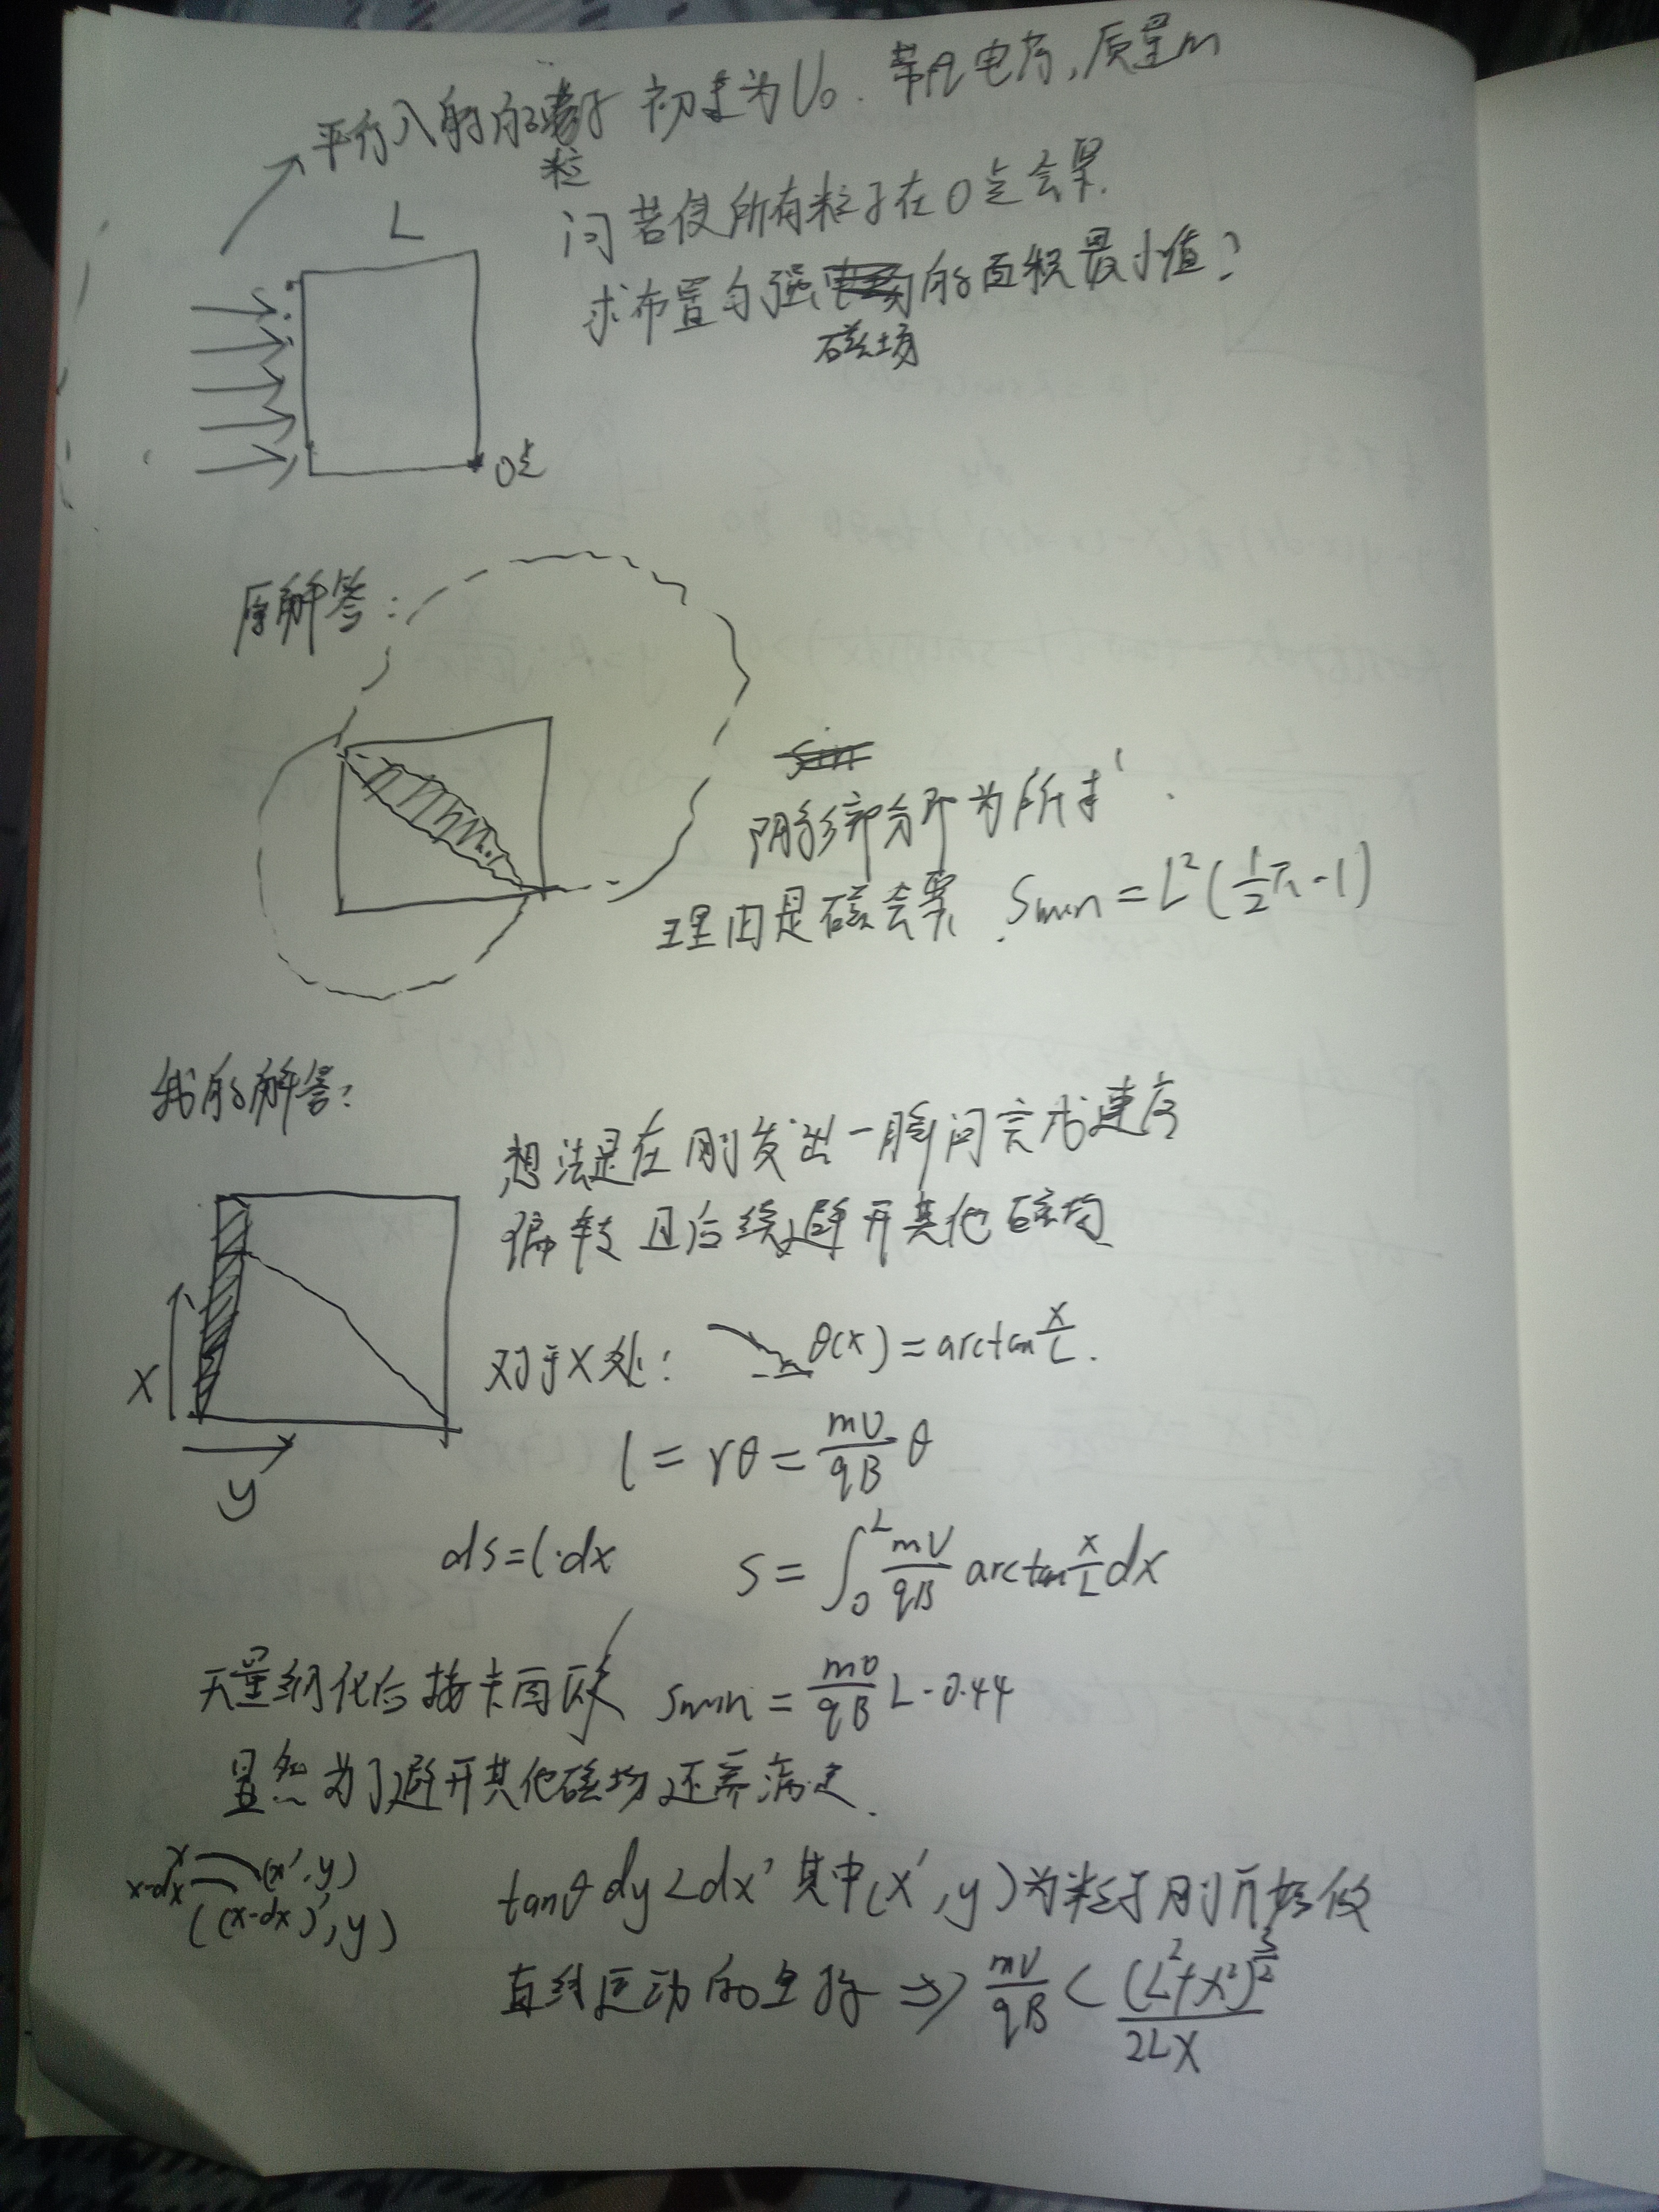 平行入射的粒子 初速为U₀. 带q电荷,质量m
L
问若使所有粒子在O点会聚.
求布置匀强磁场的面积最小值?
O点
原解答:
阴影部分即为所求.
理由是磁会聚. Smin = L²(½π-1)
我的解答:
想法是在刚发出一瞬间完成速度
偏转 且后续避开其他磁场
对于X处: θ(x) = arctan x/L.
X
y
l = rθ = mU/qB θ
ds = l·dx S = ∫₀ᴸ mU/qB arctan x/L dx
无量纲化后按卡西欧 Smin = mU/qB L·0.44
显然为了避开其他磁场还需满足.
x (x', y)
x-dx ((x-dx)', y)
tanθ dy < dx' 其中(x', y)为粒子刚开始做
直线运动的坐标 ⇒ mU/qB < (L²+X²)^(3/2)/2LX